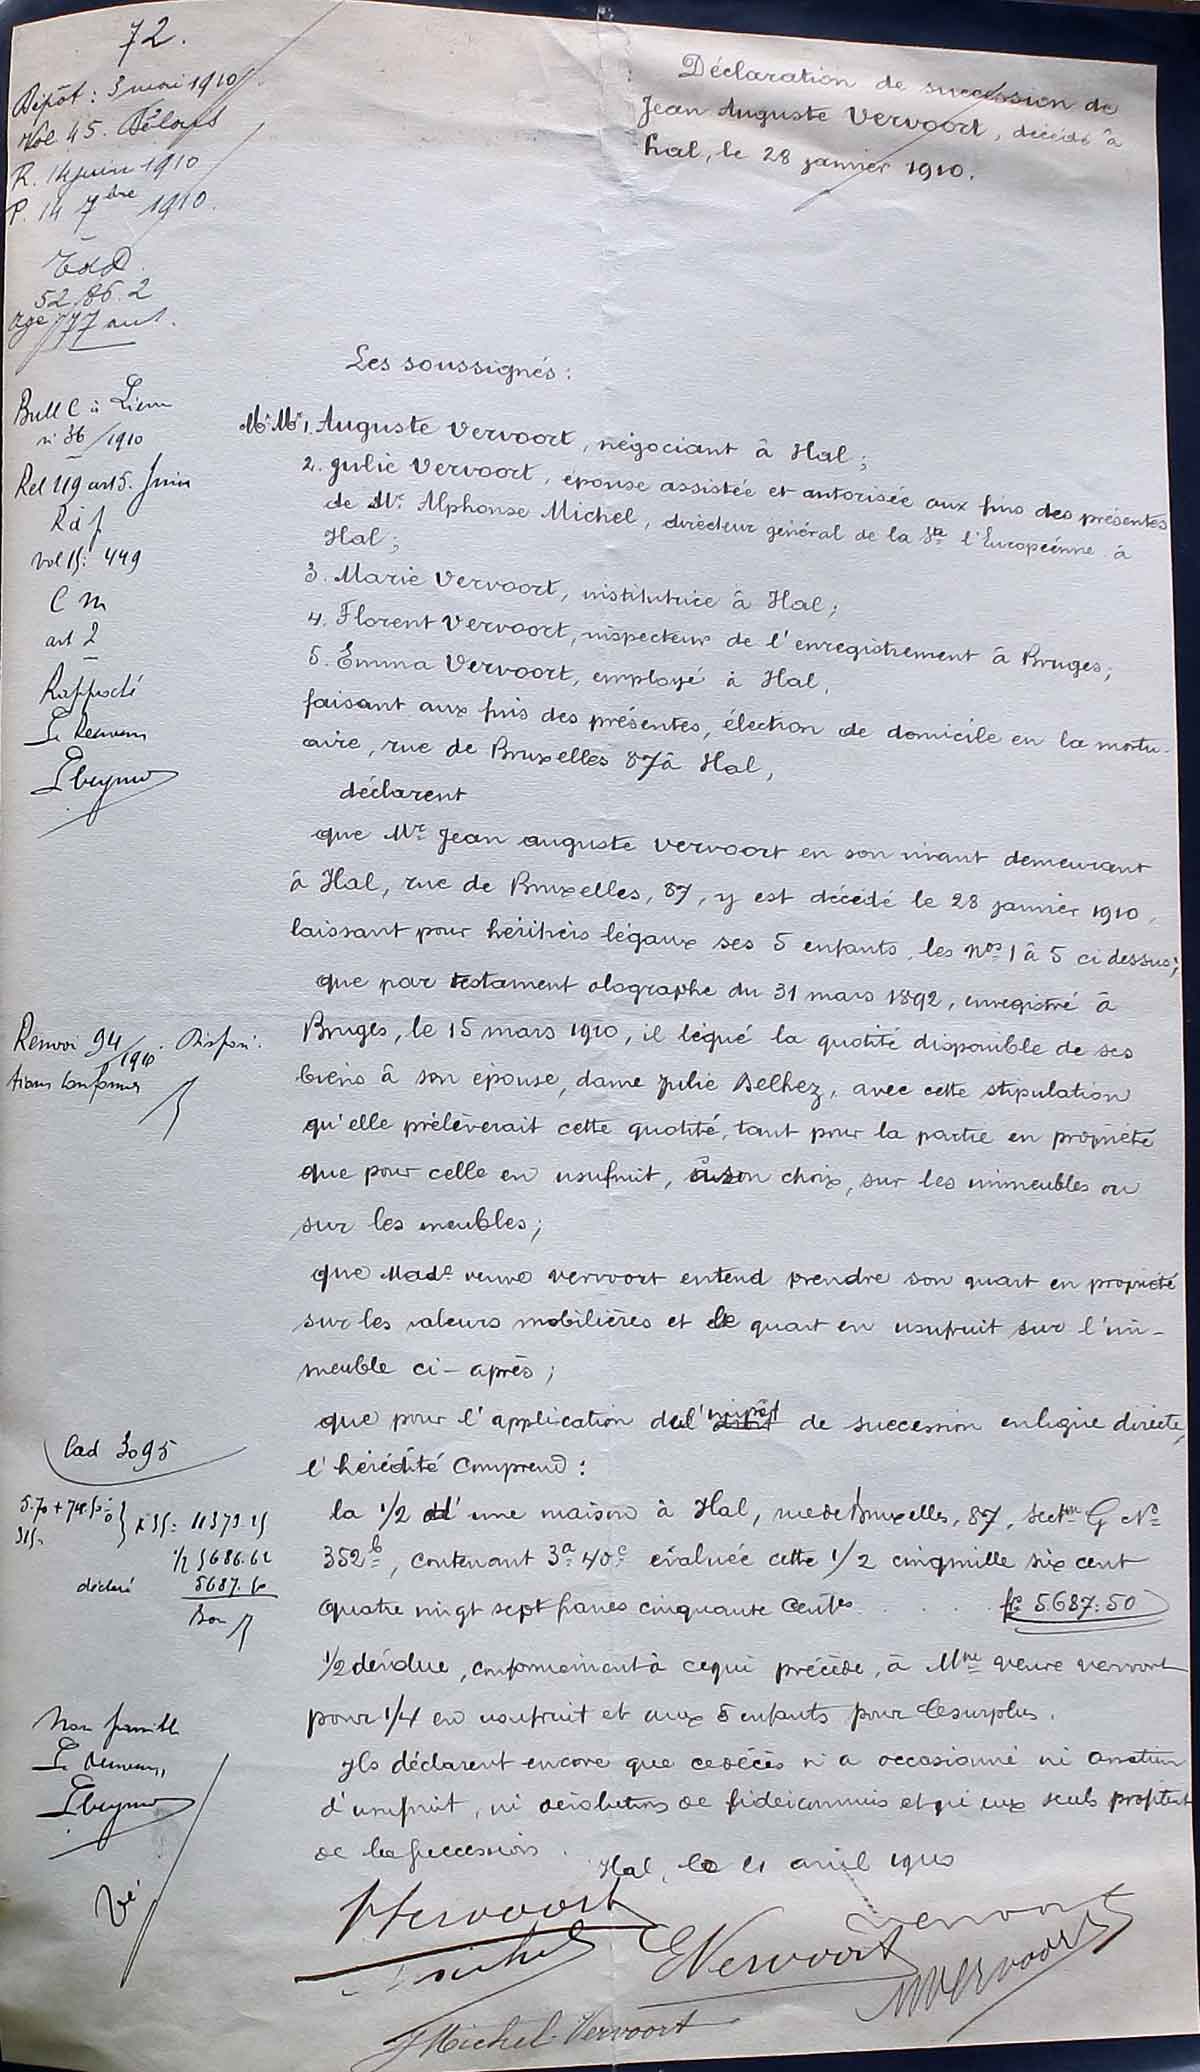 72.
Dépôt: 3 mai 1910
Vol 45.
R. 14 juin 1910
P. 14 7bre 1910.
52.86.2
age 77 ans.
Déclaration de succession de
Jean Auguste Vervoort, décédé à
Hal, le 28 janvier 1910.
Les soussignés:
Bull C à
n° 36/1910
Rel 119 art 5.
vol 15: 449
C M
art 2
Le Receveur
Mr Mr 1. Auguste Vervoort, négociant à Hal;
2. Julie Vervoort, épouse assistée et autorisée aux fins des présentes
de Mr Alphonse Michel, directeur général de la Sté l'Européenne à
Hal;
3. Marie Vervoort, institutrice à Hal;
4. Florent Vervoort, inspecteur de l'enregistrement à Bruges;
5. Emma Vervoort, employé à Hal,
faisant aux fins des présentes, élection de domicile en la mortu-
aire, rue de Bruxelles 87 à Hal,
déclarent
que Mr Jean auguste Vervoort en son vivant demeurant
à Hal, rue de Bruxelles, 87, y est décédé le 28 janvier 1910,
laissant pour héritiers légaux ses 5 enfants, les nos 1 à 5 ci dessus;
que par testament olographe du 31 mars 1892, enregistré à
Bruges, le 15 mars 1910, il légué la quotité disponible de ses
biens à son épouse, dame Julie Delhez, avec cette stipulation
qu'elle prélèverait cette quotité, tant pour la partie en propriété
que pour celle en usufruit, à son choix, sur les immeubles ou
sur les meubles;
Renvoi 94/1910. Disposi-
tions conformes
que Made veuve Vervoort entend prendre son quart en propriété
sur les valeurs mobilières et le quart en usufruit sur l'im-
meuble ci-après;
que pour l'application de l'impôt de succession en ligne directe,
l'hérédité comprend:
Cad 3095
la 1/2 d'une maison à Hal, rue de Bruxelles, 87, secton G No
352b, contenant 3a 40c évaluée cette 1/2 cinq mille six cent
quatre vingt sept francs cinquante centes . . . . frs 5.687:50
x 35: 11373.25
1/2 5686.62
déclaré 5687.50
Bon
1/2 dévolue, conformément à ce qui précède, à Mme veuve Vervoort
pour 1/4 en usufruit et aux 5 enfants pour le surplus.
Ils déclarent encore que ce décès n'a occasionné ni
d'usufruit, ni dévolutions de fideicommis et qu'eux seuls profitent
de la succession.
Hal, le 21 avril 1910
Le Receveur,
Vervoort
Michel
E Vervoort
Vervoort
M Vervoort
J Michel-Vervoort